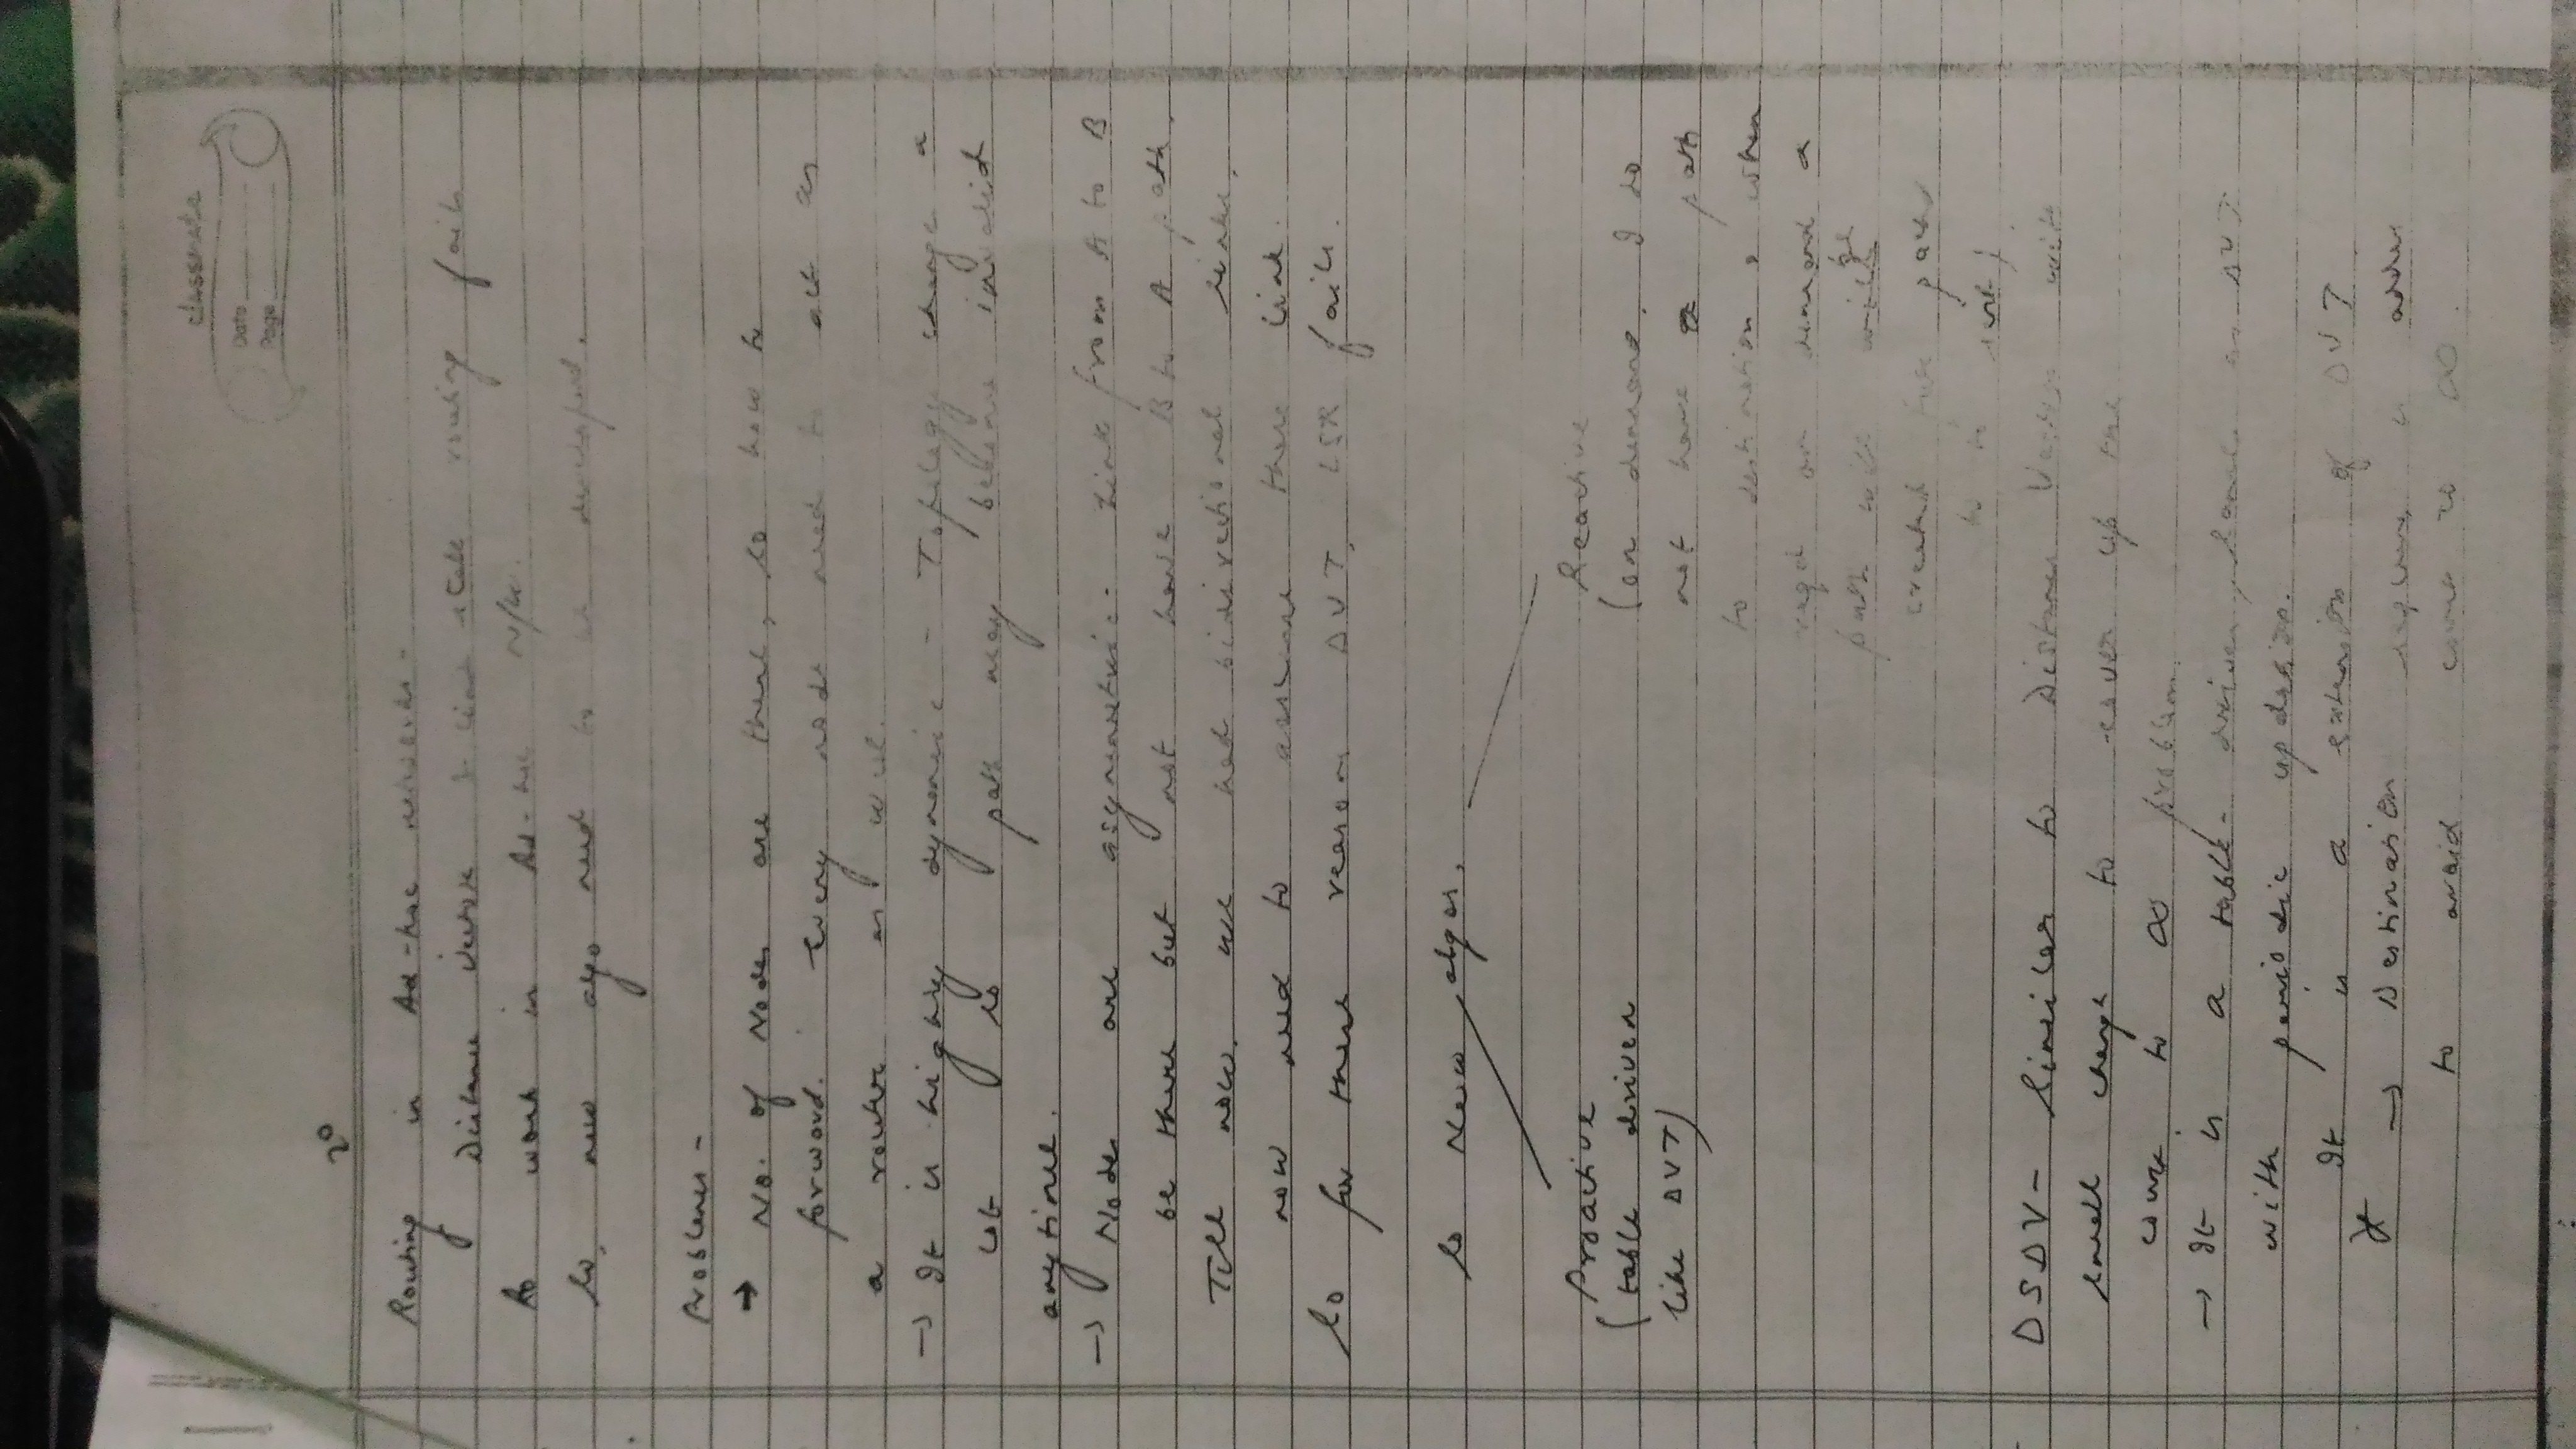 classmate
Date
Page
20
Routing in Ad-hoc networks-
Distance Vector & link state routing fails
to work in Ad-hoc N/w.
So, new algo need to be developed.
Problems -
→ No. of Nodes are there, so how to
forward. Every node need to act as
a router as well.
→ It is highly dynamic - Topology change a
lot so path may become invalid
anytime.
→ Nodes are asymmetric. Link from A to B
be there but not have B to A path.
Till now, we had bidirectional links,
now need to assume these link.
So for these reasons DVT, LSR fails.
So New algos.
Proactive
(table driven
like DVT)
Reactive
(on demand, I do
not have a path
to destination, when
reqd on demand a
path will be
created path
to
DSDV- Similar to Distance Vector with
small change to cover up the
count to ∞ problem.
→ It is a table-driven, same as DVT
with periodic updation.
It is a extension of DVT
* → Destination sequence is added
to avoid count to ∞.